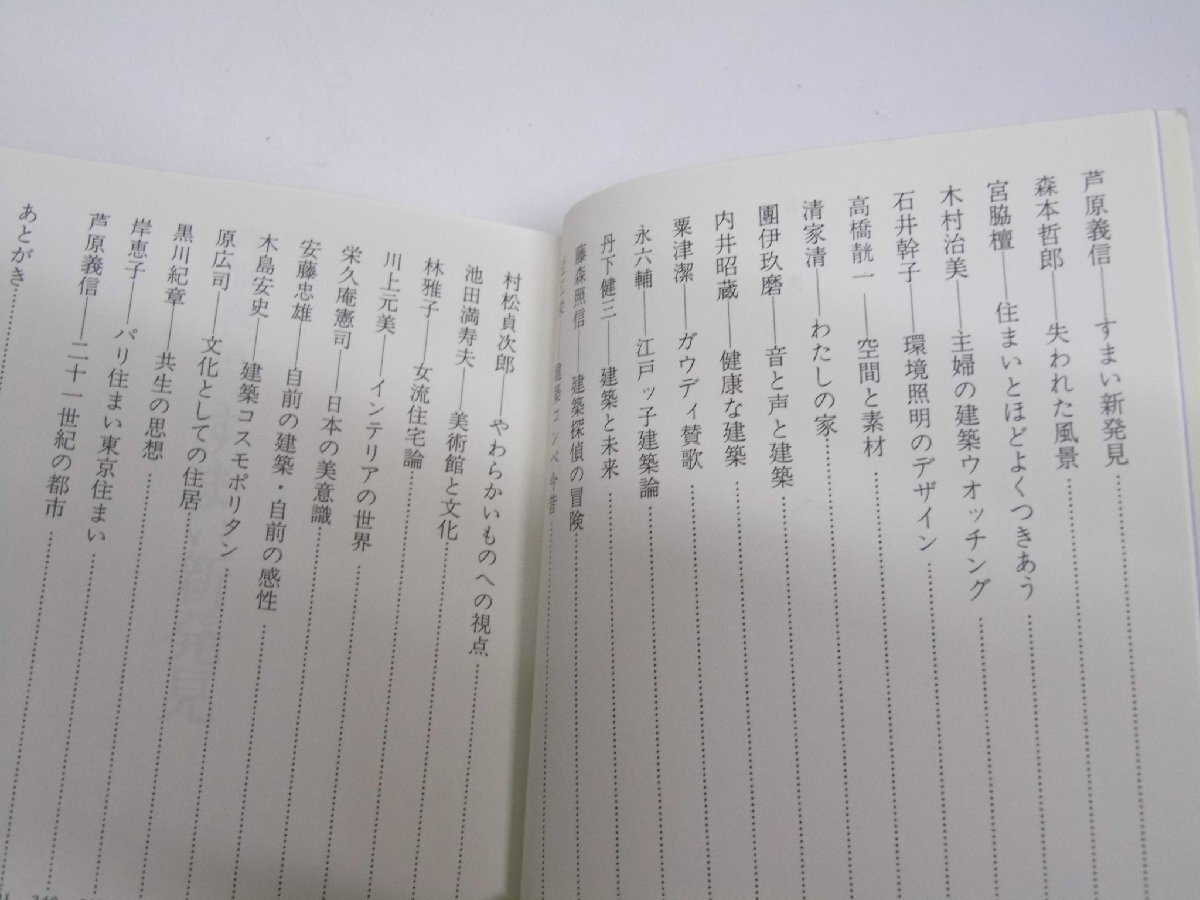 芦原義信——すまい新発見
森本哲郎——失われた風景
宮脇檀——住まいとほどよくつきあう
木村治美——主婦の建築ウオッチング
石井幹子——環境照明のデザイン
高橋靗一——空間と素材
清家清——わたしの家
團伊玖磨——音と声と建築
内井昭蔵——健康な建築
粟津潔——ガウディ賛歌
永六輔——江戸ッ子建築論
丹下健三——建築と未来
藤森照信——建築探偵の冒険
——建築コンペ今昔
村松貞次郎——やわらかいものへの視点
池田満寿夫——美術館と文化
林雅子——女流住宅論
川上元美——インテリアの世界
栄久庵憲司——日本の美意識
安藤忠雄——自前の建築・自前の感性
木島安史——建築コスモポリタン
原広司——文化としての住居
黒川紀章——共生の思想
岸恵子——パリ住まい東京住まい
芦原義信——二十一世紀の都市
あとがき